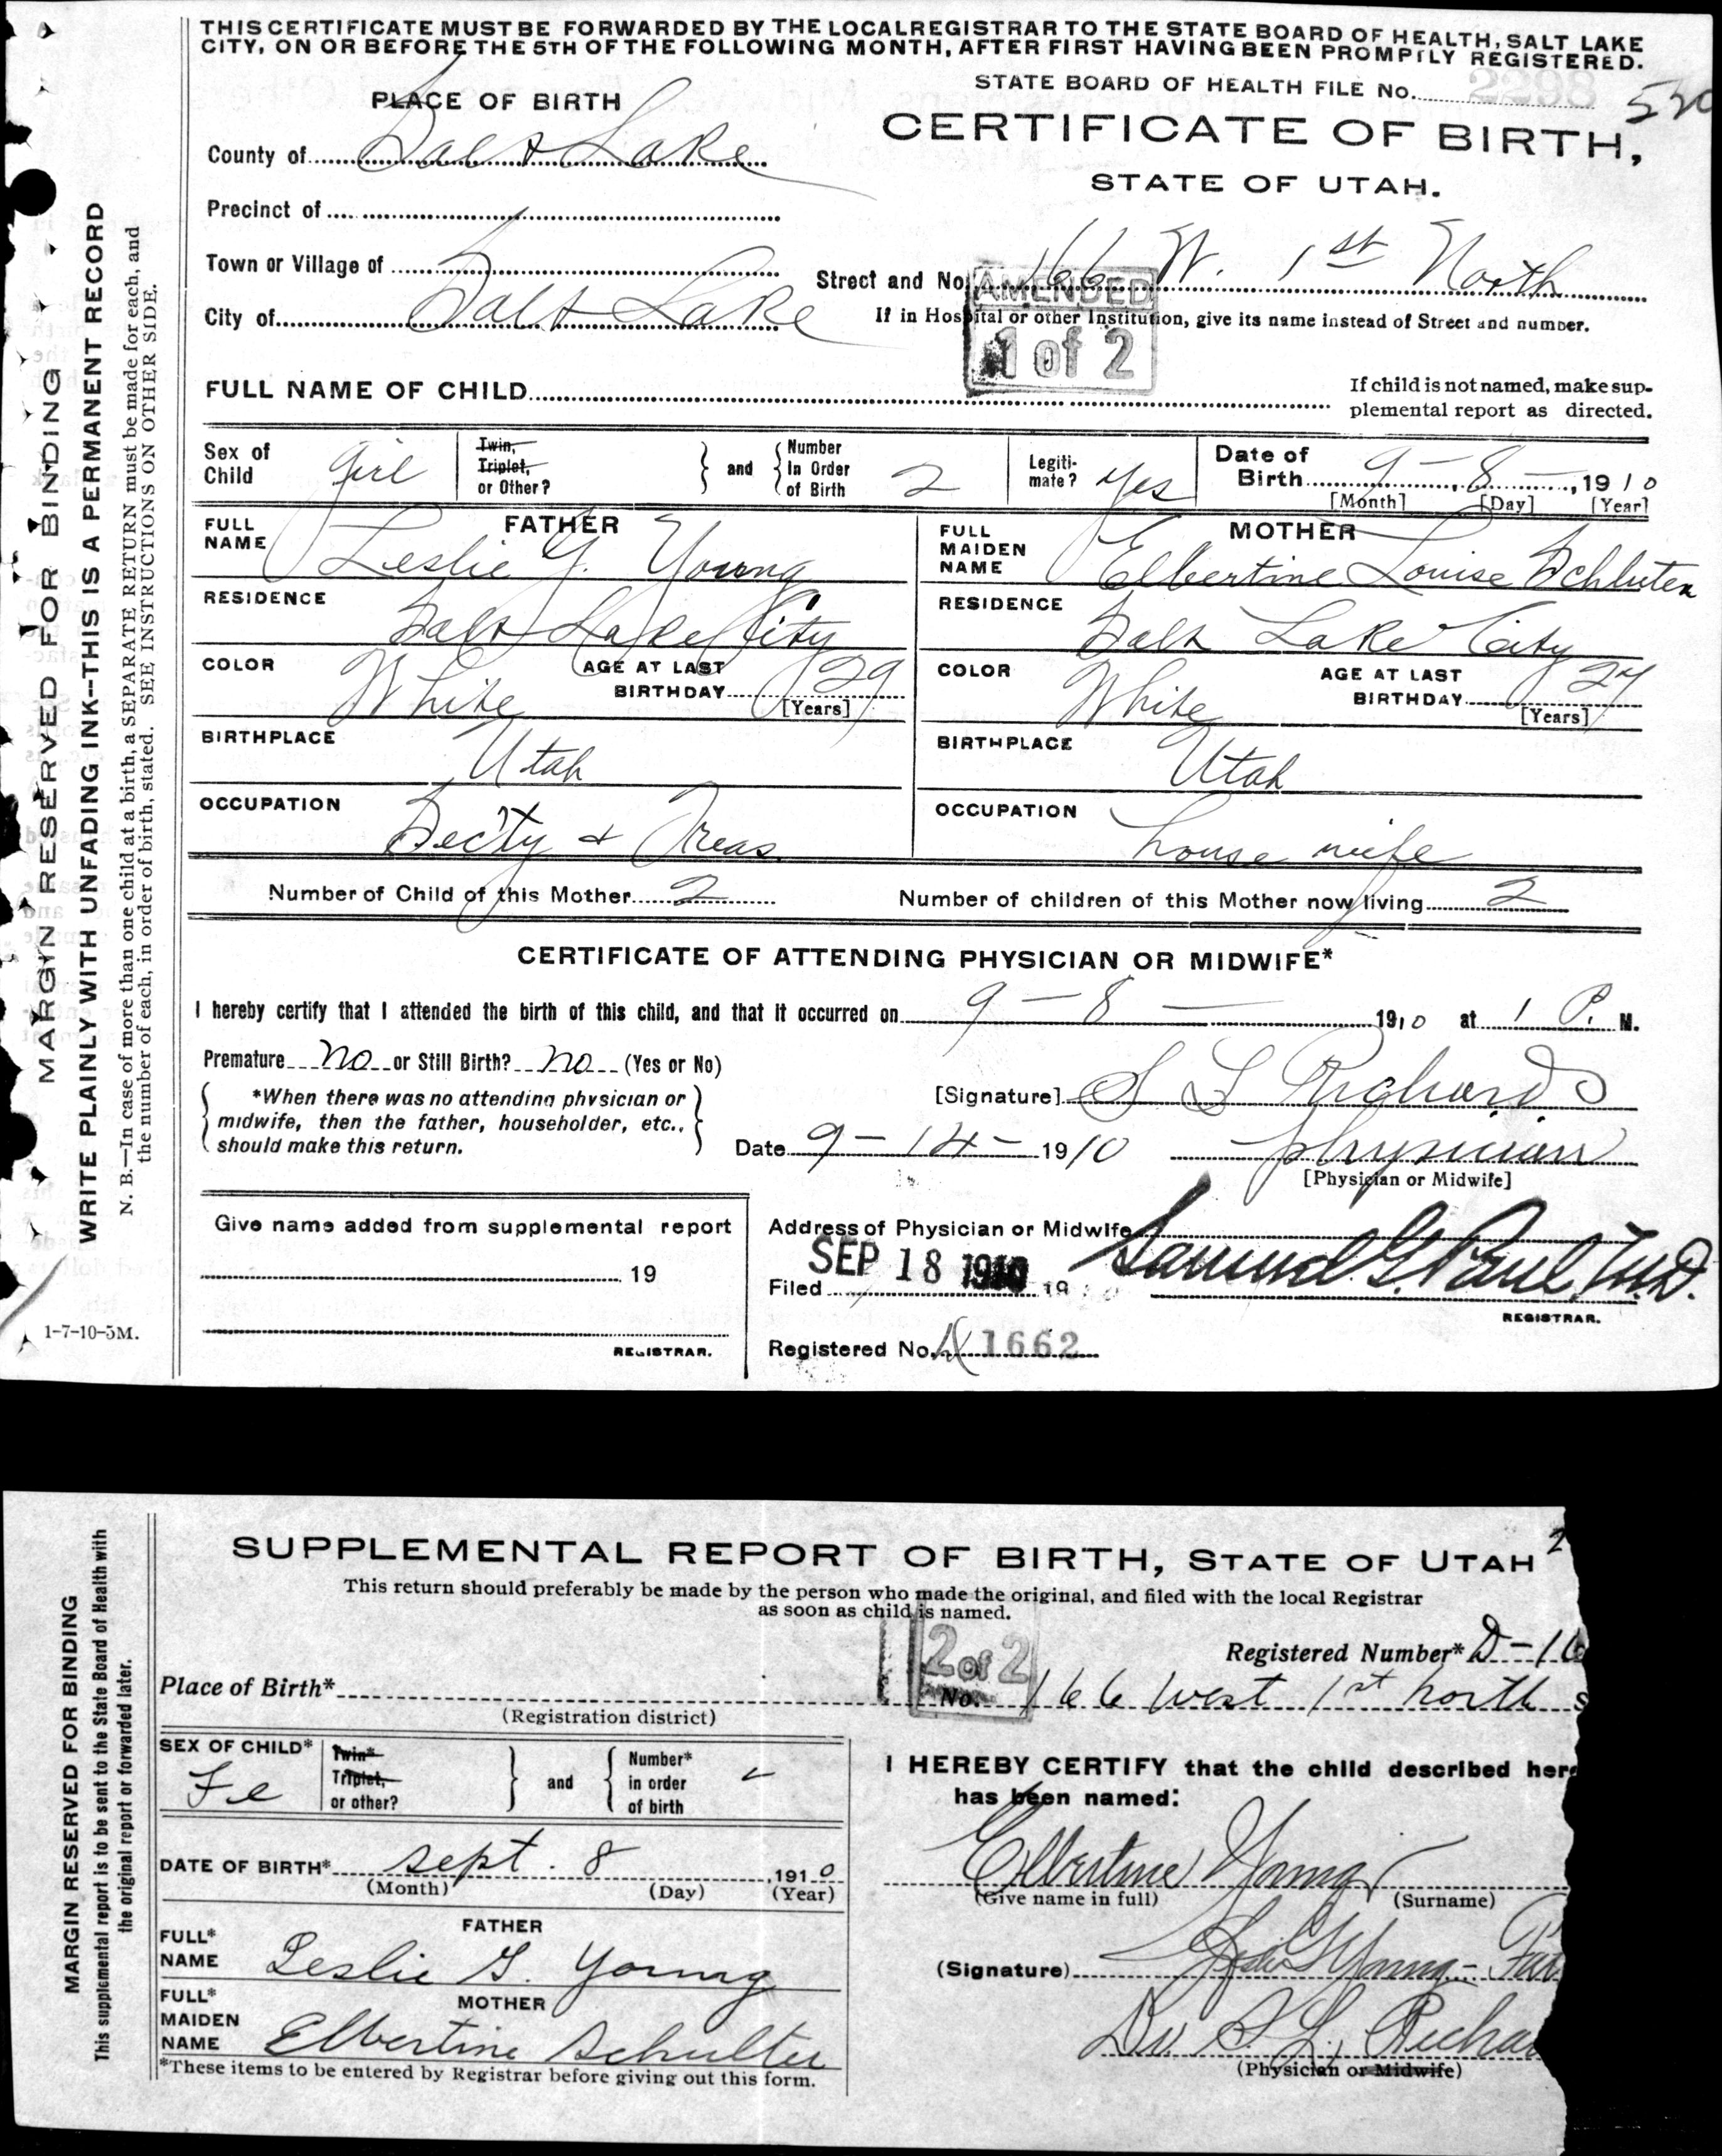 THIS CERTIFICATE MUST BE FORWARDED BY THE LOCAL REGISTRAR TO THE STATE BOARD OF HEALTH, SALT LAKE
CITY, ON OR BEFORE THE 5TH OF THE FOLLOWING MONTH, AFTER FIRST HAVING BEEN PROMPTLY REGISTERED.
MARGIN RESERVED FOR BINDING
WRITE PLAINLY WITH UNFADING INK--THIS IS A PERMANENT RECORD
N. B.—In case of more than one child at a birth, a SEPARATE RETURN must be made for each, and
the number of each, in order of birth, stated. SEE INSTRUCTIONS ON OTHER SIDE.
STATE BOARD OF HEALTH FILE No. 2298
PLACE OF BIRTH
CERTIFICATE OF BIRTH,
STATE OF UTAH.
County of Salt Lake
Precinct of
Town or Village of
Street and No. 166 W. 1st North
AMENDED
1 of 2
City of Salt Lake
If in Hospital or other Institution, give its name instead of Street and number.
FULL NAME OF CHILD
If child is not named, make sup-
plemental report as directed.
Sex of Child girl
Twin, Triplet, or Other? and Number In Order of Birth 2
Legiti-mate? yes
Date of Birth 9 - 8 - 1910
[Month] [Day] [Year]
FATHER
FULL NAME Leslie G. Young
RESIDENCE Salt Lake City
COLOR White AGE AT LAST BIRTHDAY 29 [Years]
BIRTHPLACE Utah
OCCUPATION Sec'ty & Treas.
MOTHER
FULL MAIDEN NAME Elbertine Louise Schluter
RESIDENCE Salt Lake City
COLOR White AGE AT LAST BIRTHDAY 27 [Years]
BIRTHPLACE Utah
OCCUPATION house wife
Number of Child of this Mother 2 Number of children of this Mother now living 2
CERTIFICATE OF ATTENDING PHYSICIAN OR MIDWIFE*
I hereby certify that I attended the birth of this child, and that it occurred on 9 - 8 - 1910 at 1 P. M.
Premature no or Still Birth? no (Yes or No)
*When there was no attending physician or
midwife, then the father, householder, etc.,
should make this return.
[Signature] S L Richards
Date 9 - 14 - 1910 physician
[Physician or Midwife]
Give name added from supplemental report
19
REGISTRAR.
Address of Physician or Midwife
Filed SEP 18 1910 19 Samuel G. Paul, M.D.
REGISTRAR.
Registered No. 1662
1-7-10-5M.
MARGIN RESERVED FOR BINDING
This supplemental report is to be sent to the State Board of Health with
the original report or forwarded later.
SUPPLEMENTAL REPORT OF BIRTH, STATE OF UTAH
This return should preferably be made by the person who made the original, and filed with the local Registrar
as soon as child is named.
2 of 2
Registered Number* D-16
Place of Birth* No. 166 West 1st north S
(Registration district)
SEX OF CHILD* Fe
Twin* Triplet, or other? and Number* in order of birth
DATE OF BIRTH* Sept. 8 1910
(Month) (Day) (Year)
FATHER
FULL* NAME Leslie G. Young
MOTHER
FULL* MAIDEN NAME Elbertine Schulter
*These items to be entered by Registrar before giving out this form.
I HEREBY CERTIFY that the child described here
has been named:
Elbertine Young
(Give name in full) (Surname)
(Signature) Leslie G Young - Fat
Dr. S. L. Richar
(Physician or Midwife)